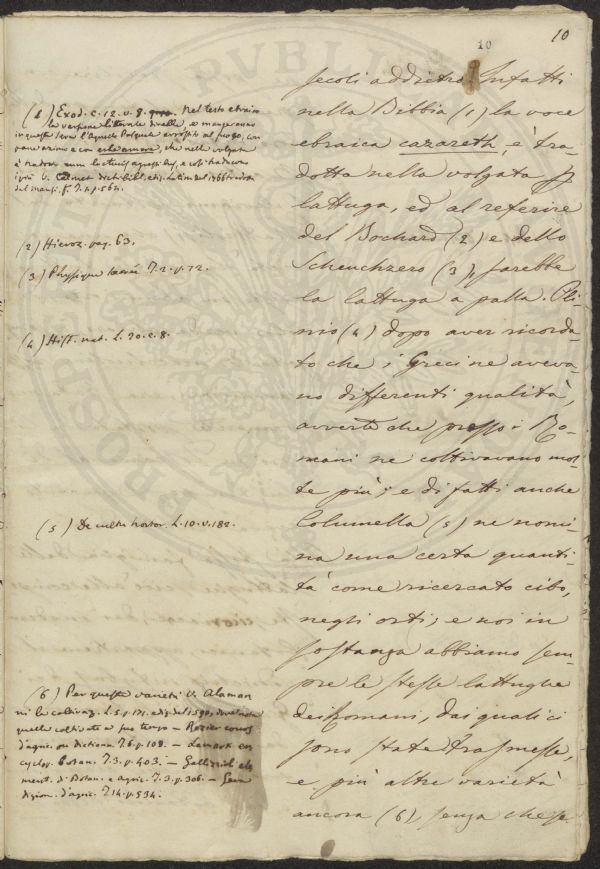 10
10
secoli addietro. Infatti
nella Bibbia (1) la voce
ebraica cazareth, è tra-
dotta nella volgata p
lattuga, ed al referire
del Bochard (2) e dello
Scheuchzero (3), sarebbe
la lattuga a palla. Pli-
nio (4) dopo aver ricorda-
to che i Greci ne aveva-
no differenti qualità,
avverte che presso i Ro-
mani ne coltivavano mol-
te più; e di fatti anche
Columella (5) ne nomi-
na una certa quanti-
tà come ricercato cibo,
negli orti; e noi in
sostanza abbiamo sem-
pre le stesse lattughe
dei Romani, dai quali ci
sono state trasmesse,
e più altre varietà
ancora (6) senza che se
(1) Exod. c. 12. v. 8. nel testo ebraico
la versione litterale di velle, e mangeranno
in questa sera l'Agnello Pasquale arrostito al fuoco, con
pane azimo e con erbe amare, che nella volgata
è tradotto cum lactucis agrestibus, e così traducono
V. Calmet dict. bibl. ediz. del 1766
del mansi. T. 1. p. 564.
(2) Hieroz. pag. 63.
(3) Physique T. 2. p. 72.
(4) Hist. nat. L. 20. c. 8.
(5) De cultu hortor. L. 10. v. 182.
(6) Per queste varietà V. Alaman-
ni la coltivaz. L. 5. p. 171. ediz. del 1590, dove
quelle coltivate a suo tempo — Rozier cours
d'agric. ou dictionn. T. 6. p. 108. — Lamark en-
cyclop. botan. T. 3. p. 403. — Gallizioli ele-
ment. di Botan. e agric. T. 3. p. 306. —
dizion. d'agric. T. 14. p. 534.
PVBLI
PROSPE